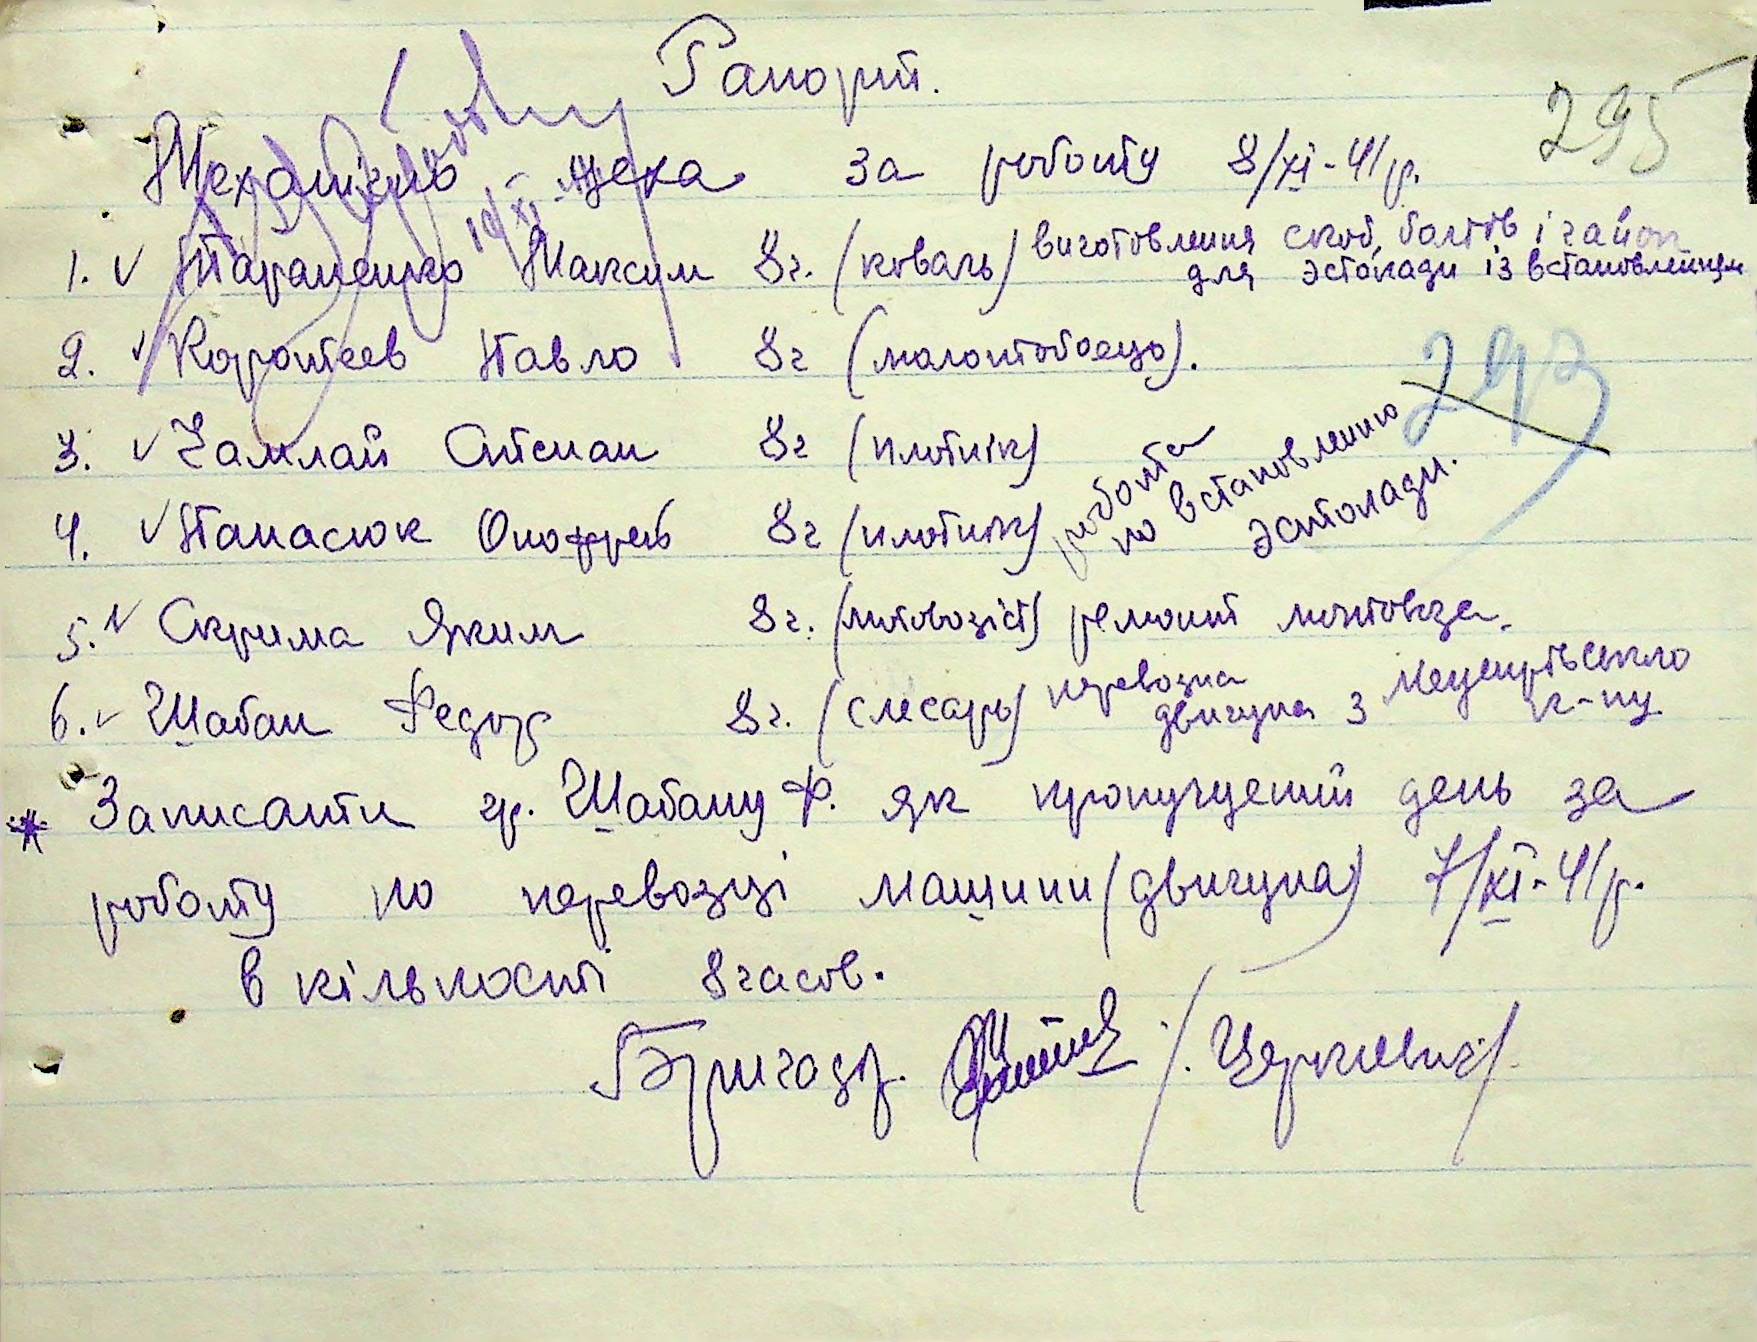 Рапорт.
295
Механічнь цеха за роботу 8/XI-41р.
1. Тараненко Максим 8г. (коваль) виготовлення скоб, болтів і гайок
для эстокади із встановленням
2. Коротеев Павло 8г (молотобоець).
293
3. Чамлай Степан 8г (плотнік)
4. Панасюк Онофрей 8г (плотнік) робота
по встановленню
эстокади.
5. Скрима Яким 8г. (мотовозіст) ремонт мотовоза.
6. Шабан Федор 8г. (слесарь) перевозка
двигуна з
к-ну
* Записати гр. Шабану Ф. як пропущений день за
роботу по перевозці машини (двигуна) 7/XI-41р.
в кількості 8 часов.
Бригадр. / Церкевич /